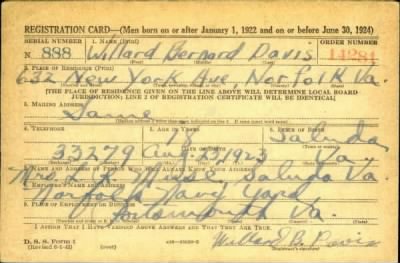 REGISTRATION CARD—(Men born on or after January 1, 1922 and on or before June 30, 1924)
SERIAL NUMBER 1. NAME (Print) ORDER NUMBER
N 888 Willard Bernard Davis
(First) (Middle) (Last)
2. PLACE OF RESIDENCE (Print)
632 New York Ave Norfolk Va.
[THE PLACE OF RESIDENCE GIVEN ON THE LINE ABOVE WILL DETERMINE LOCAL BOARD
JURISDICTION; LINE 2 OF REGISTRATION CERTIFICATE WILL BE IDENTICAL]
3. MAILING ADDRESS
Same
4. TELEPHONE 5. AGE IN YEARS 6. PLACE OF BIRTH
Saluda
33279 1923 Va.
7. NAME AND ADDRESS OF PERSON WHO WILL ALWAYS KNOW YOUR ADDRESS
Mrs. Saluda Va
8. EMPLOYER'S NAME AND ADDRESS
Norfolk Navy Yard
9. PLACE OF EMPLOYMENT OR BUSINESS
Portsmouth Va.
I AFFIRM THAT I HAVE VERIFIED ABOVE ANSWERS AND THAT THEY ARE TRUE.
D. S. S. Form 1 Willard B. Davis
(over)